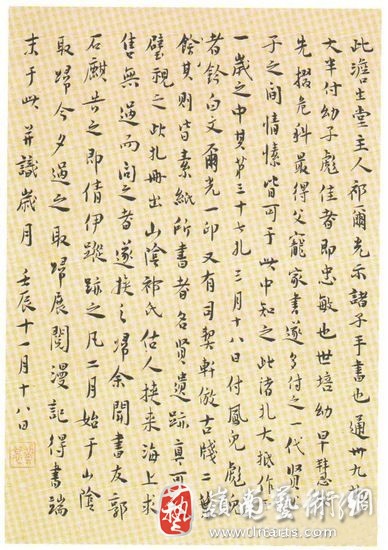 此澹生堂主人祁爾光示諸子手書也通卅九札
大半付幼子彪佳者即忠敏也世培幼早慧
先掇危科最得父寵家書遂多付之一代賢
子之間情愫皆可于此中知之此諸札大抵作
一歲之中其第三十七札三月十八日付鳳兒彪兒
者鈐白文爾光一印又有司契軒倣古牋二
餘其則皆素紙所書者名賢遺跡真可
璧視之此札冊出山陰祁氏估人挾來海上求
售無過而問之者遂挾之歸余聞書友郭
石麒告之即倩伊蹤跡之凡二月始于山陰
取歸今夕過之取歸展閱漫記得書端
末于此并識歲月 壬辰十一月十八日
藝
嶺南藝術網
www.linarts.com